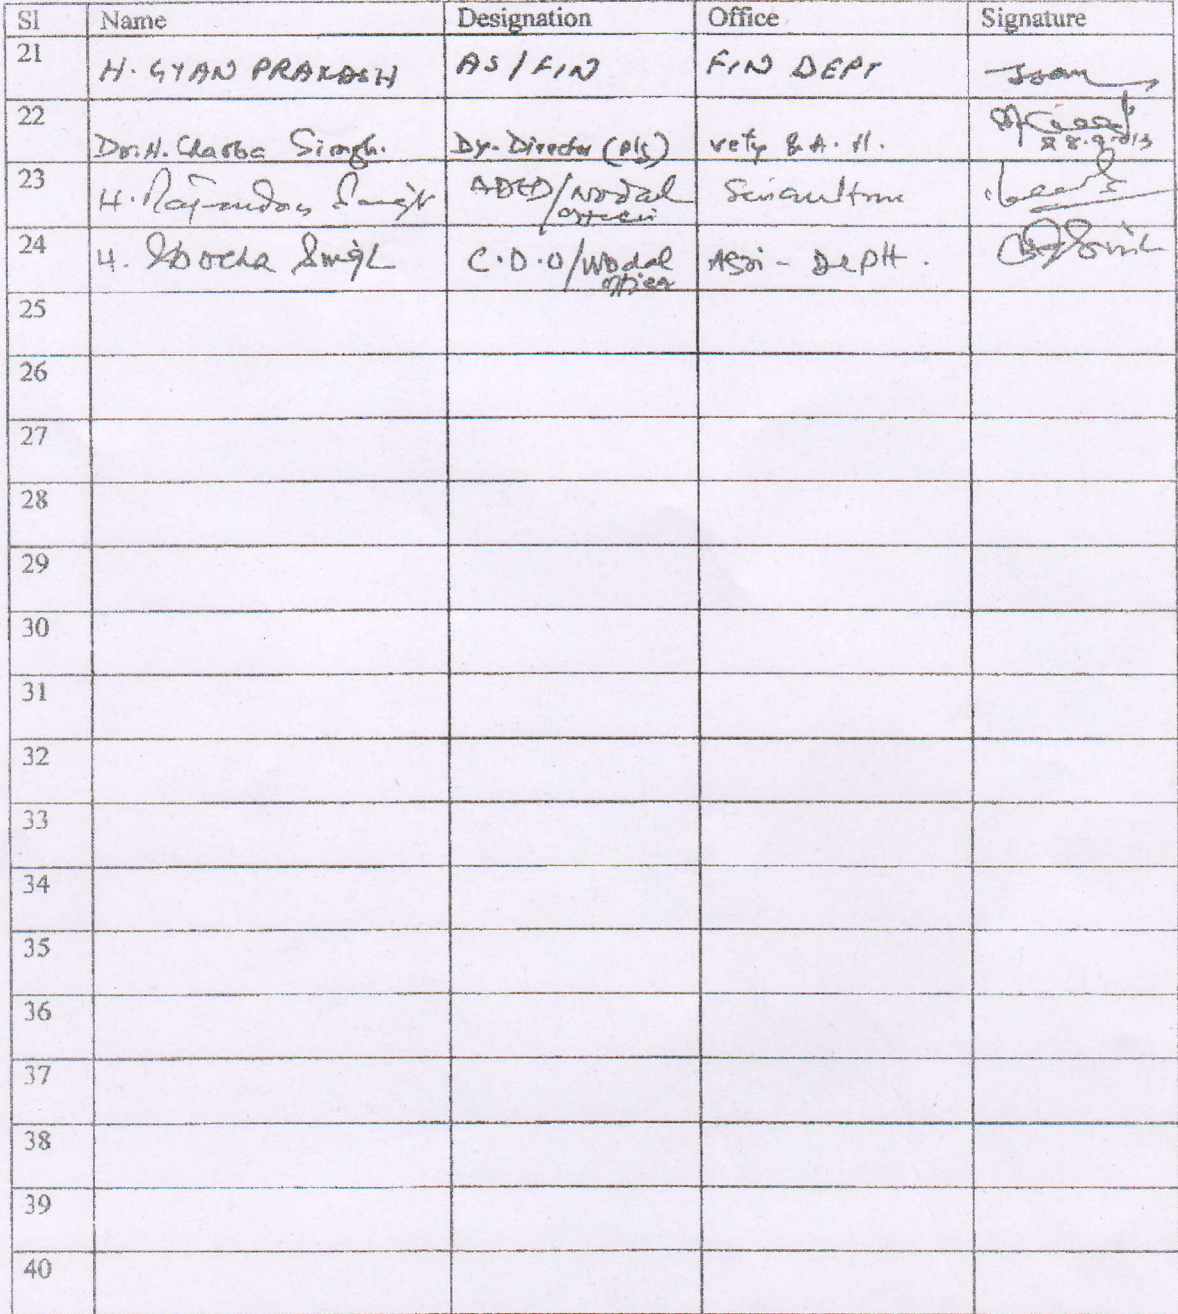 Sl Name Designation Office Signature
21 H. GYAN PRAKASH AS/FIN FIN DEPT
22 Dr. H. Chaoba Singh. Dy. Director (Plg) vety & A. H.
23 H. Singh ADED/Nodal officer Sericulture
24 H. Singh C.D.O/Nodal officer Agri- Deptt.
25
26
27
28
29
30
31
32
33
34
35
36
37
38
39
40